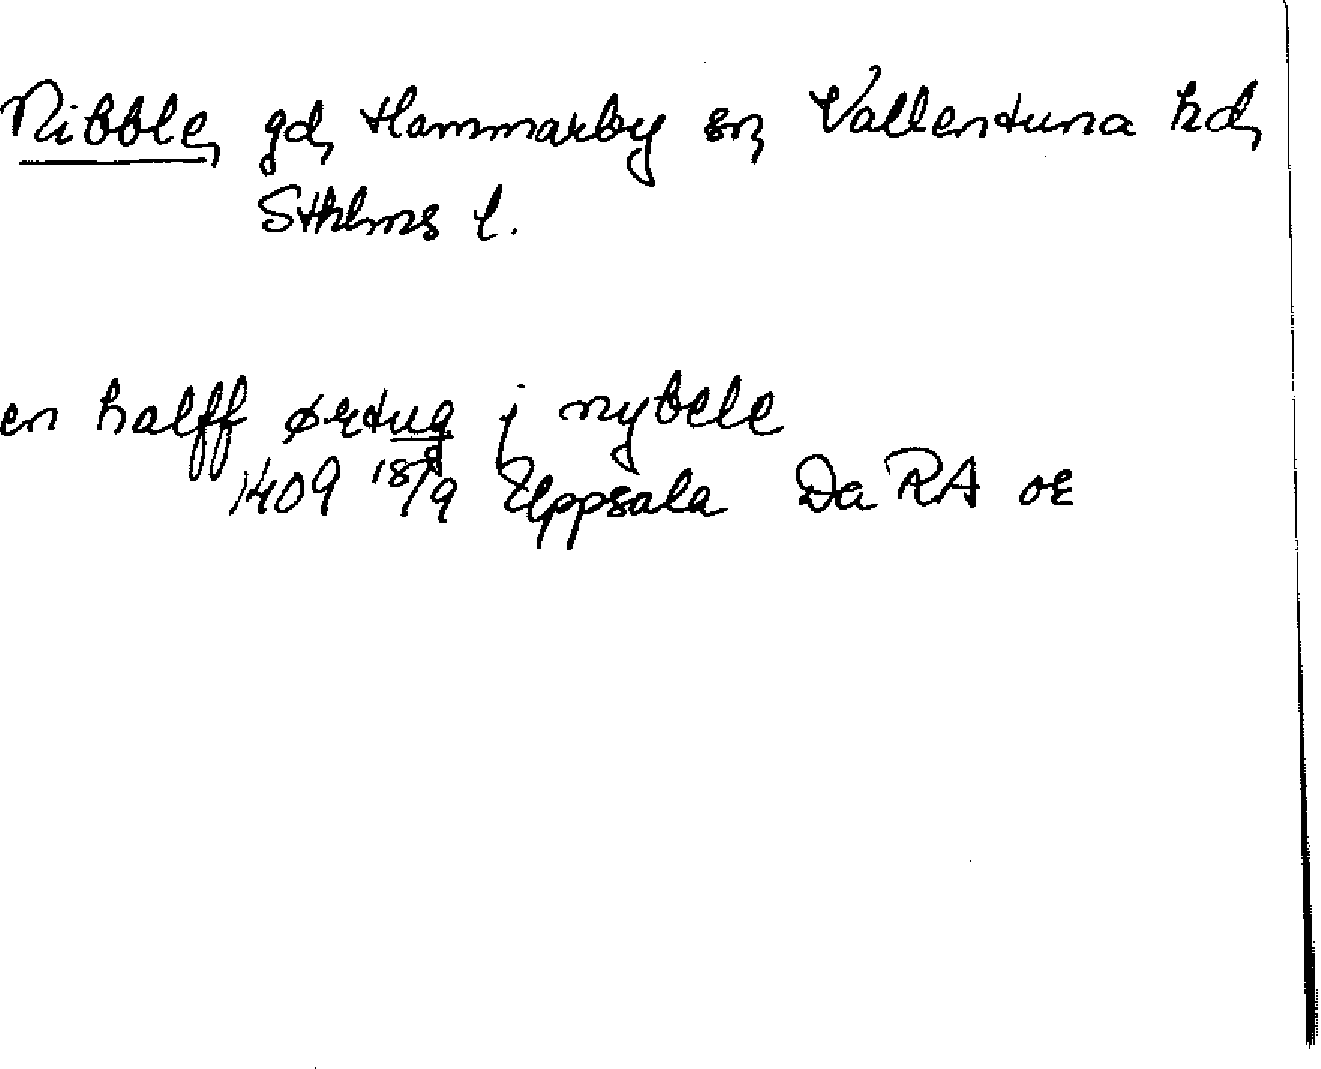 Nibble, gd, Hammarby sn, Vallentuna hd,
Sthlms l.
en halff ørtug j nybele
1409 18/9 Uppsala Da RA or